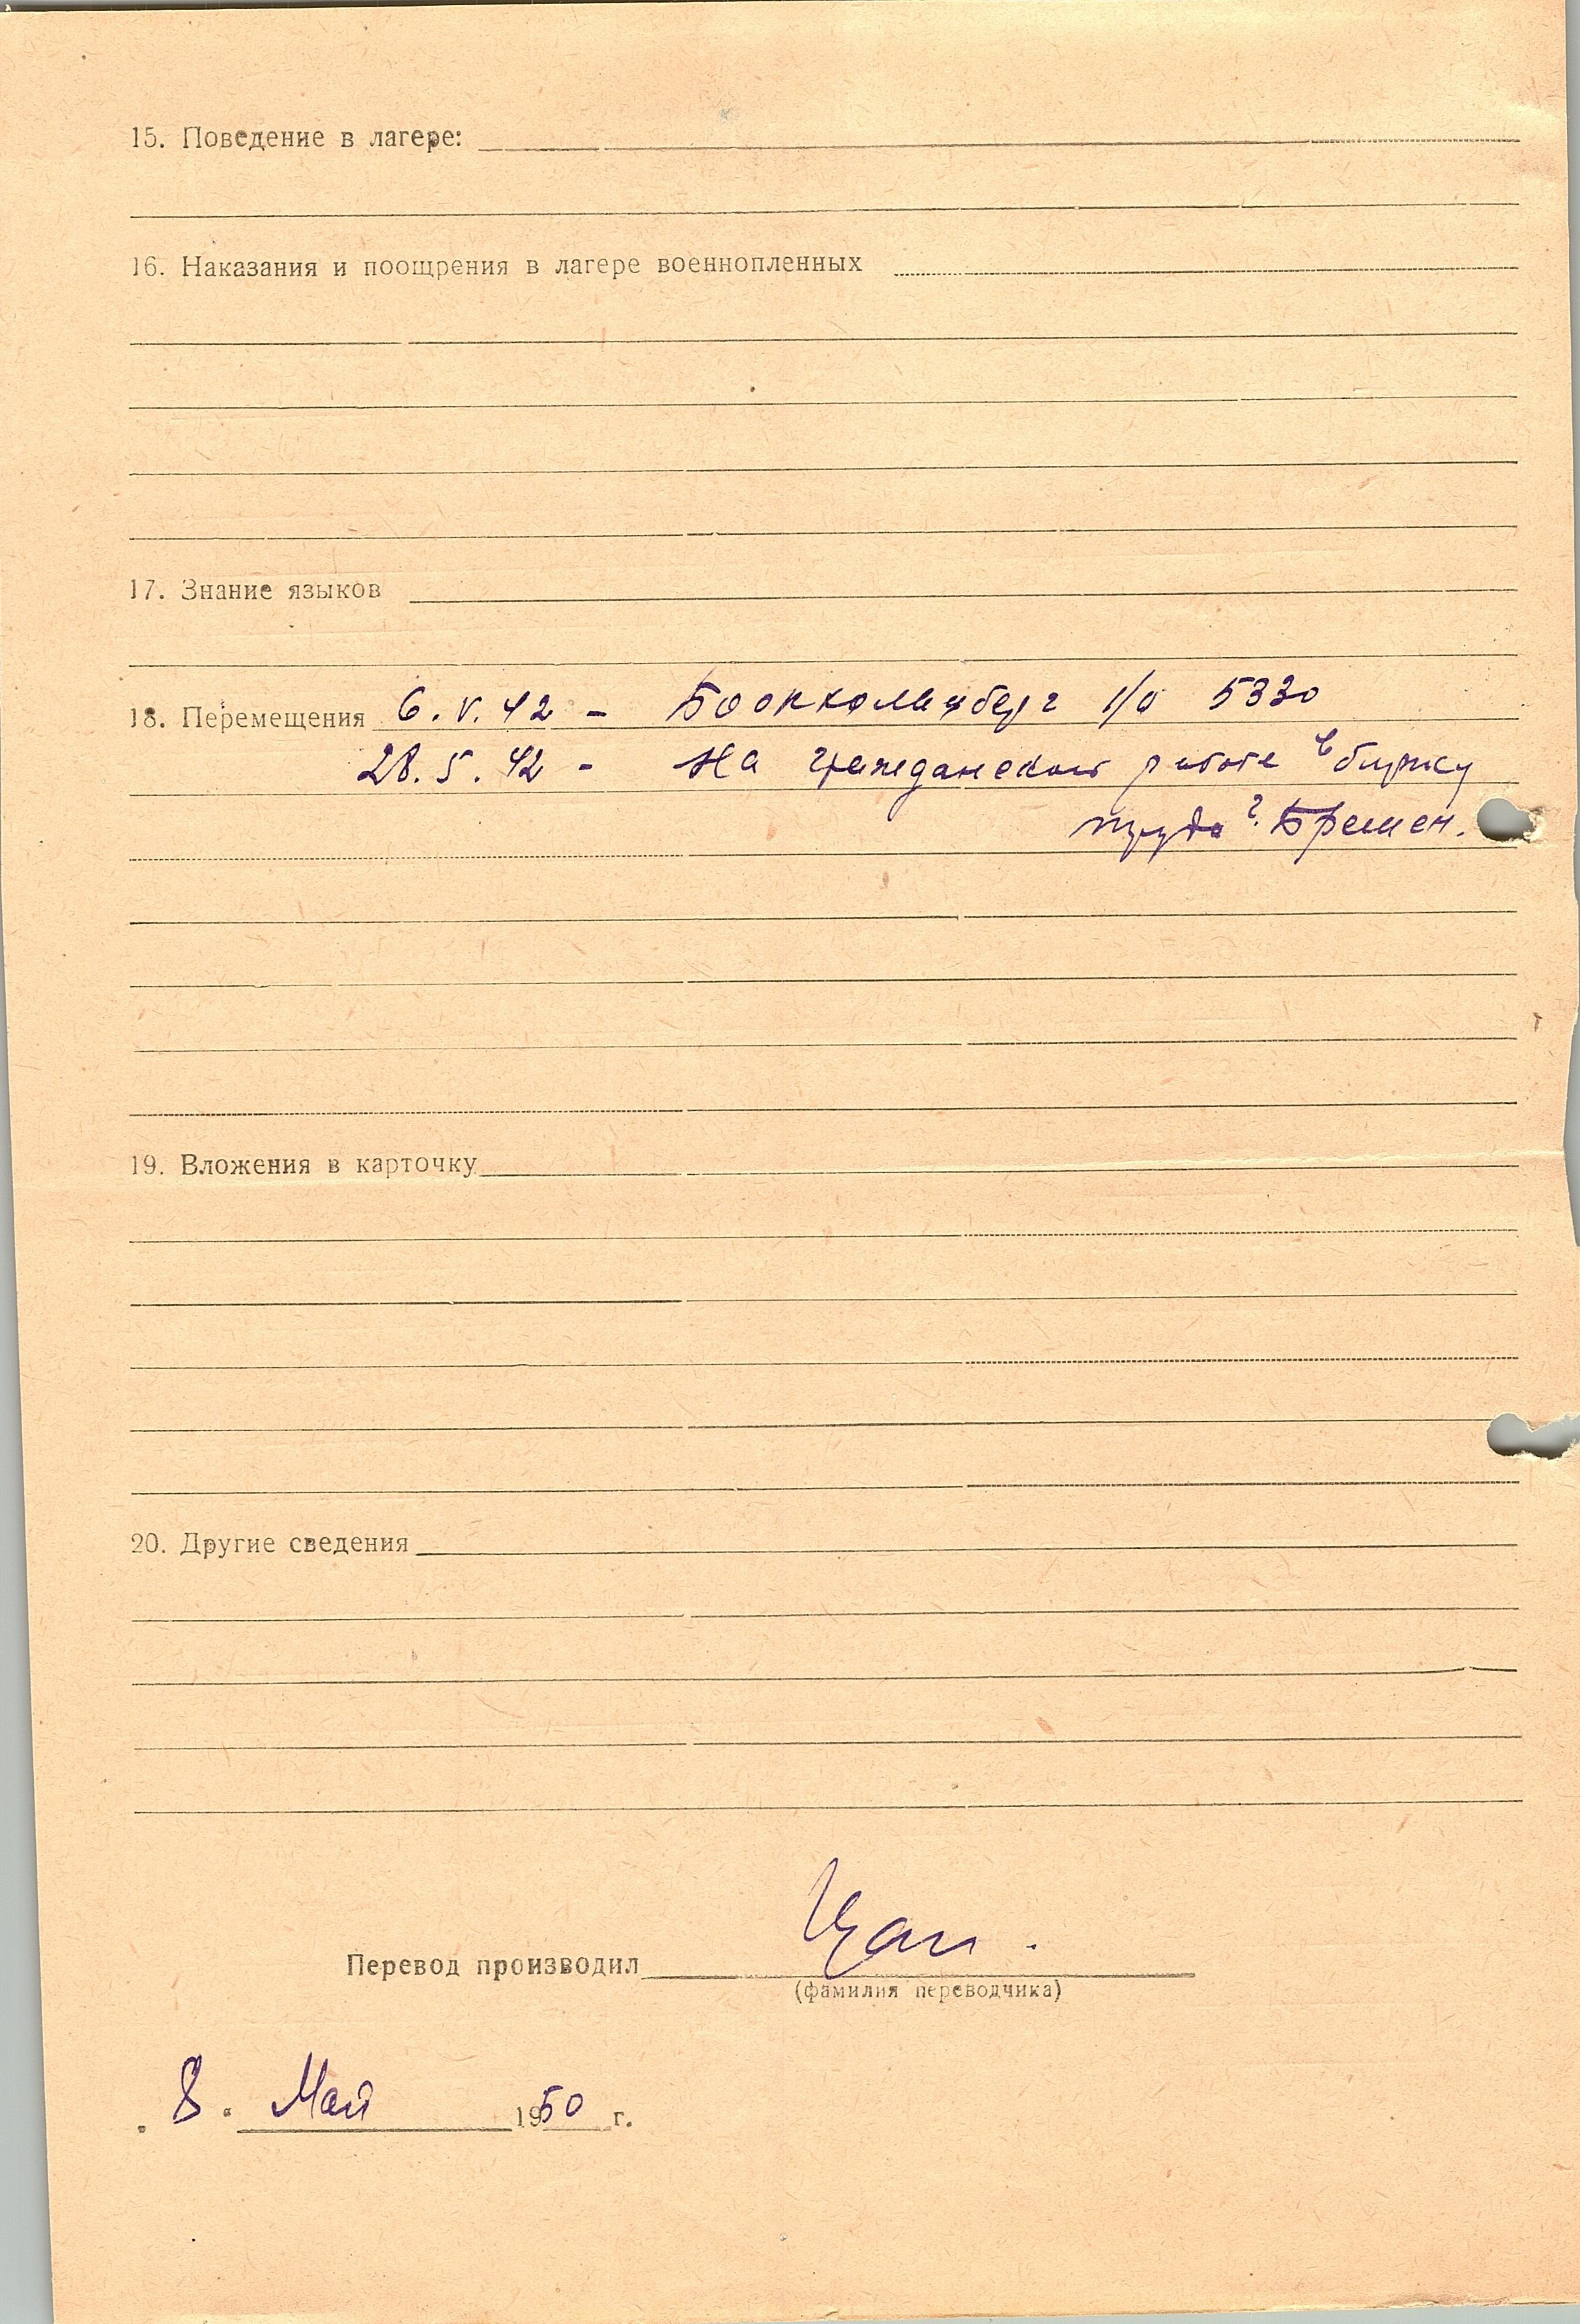 15. Поведение в лагере:
16. Наказания и поощрения в лагере военнопленных
17. Знание языков
18. Перемещения 6.V.42 - 5330
28.5.42 - На гражданской работе в биржу
труда г. Бремен.
19. Вложения в карточку
20. Другие сведения
Перевод производил
(фамилия переводчика)
„8“ Май 1950 г.